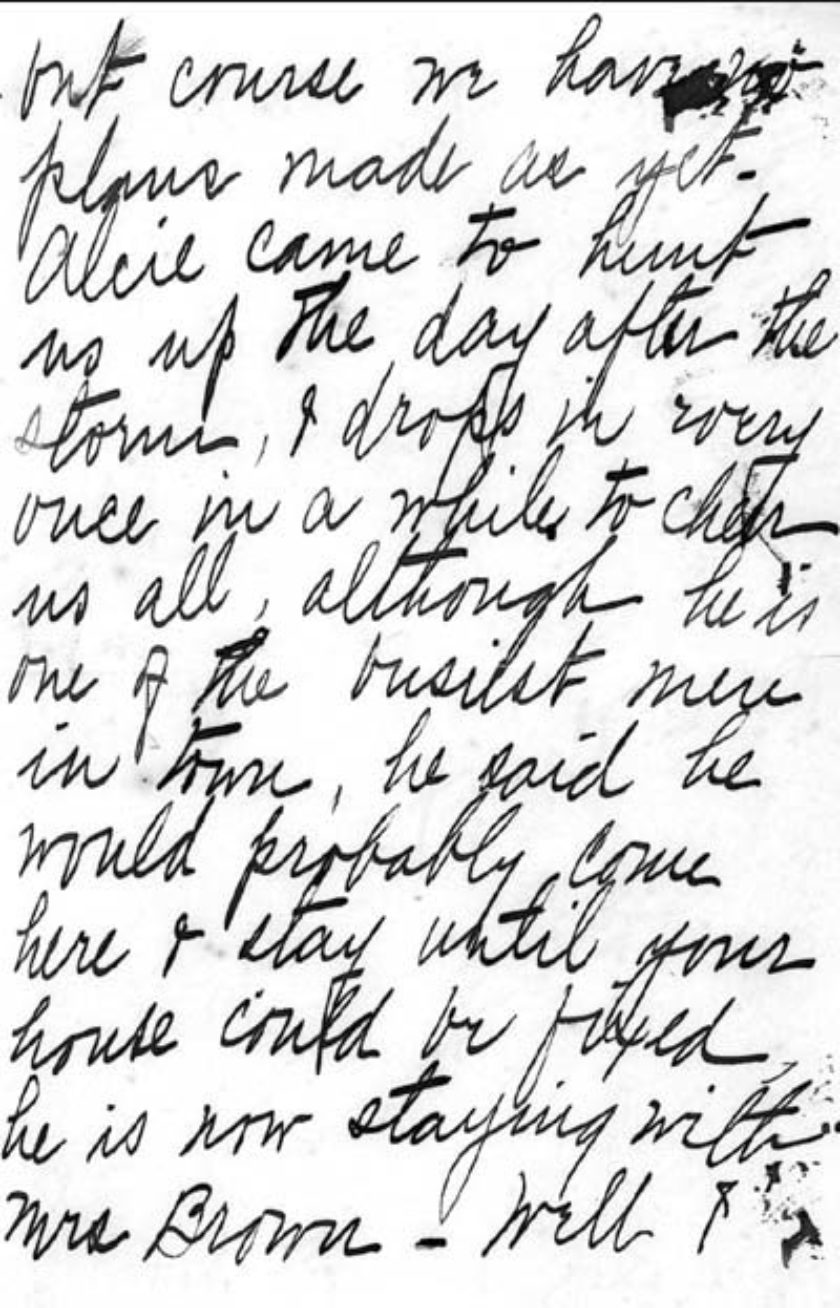 but course we have no
plans made as yet-
Alcie came to hunt
us up the day after the
storm, & drops in every
once in a while to cheer
us all, although he is
one of the busiest men
in town, he said he
would probably come
here & stay until your
house could be fixed,
he is now staying with
Mrs Brown - Well I